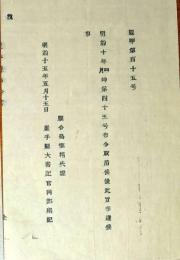 甲第百十五号
明治十年月第四十五号布令取消候條此旨布達候
事
縣令島惟精代理
明治十五年五月十五日 岩手縣大書記官岡部綱紀